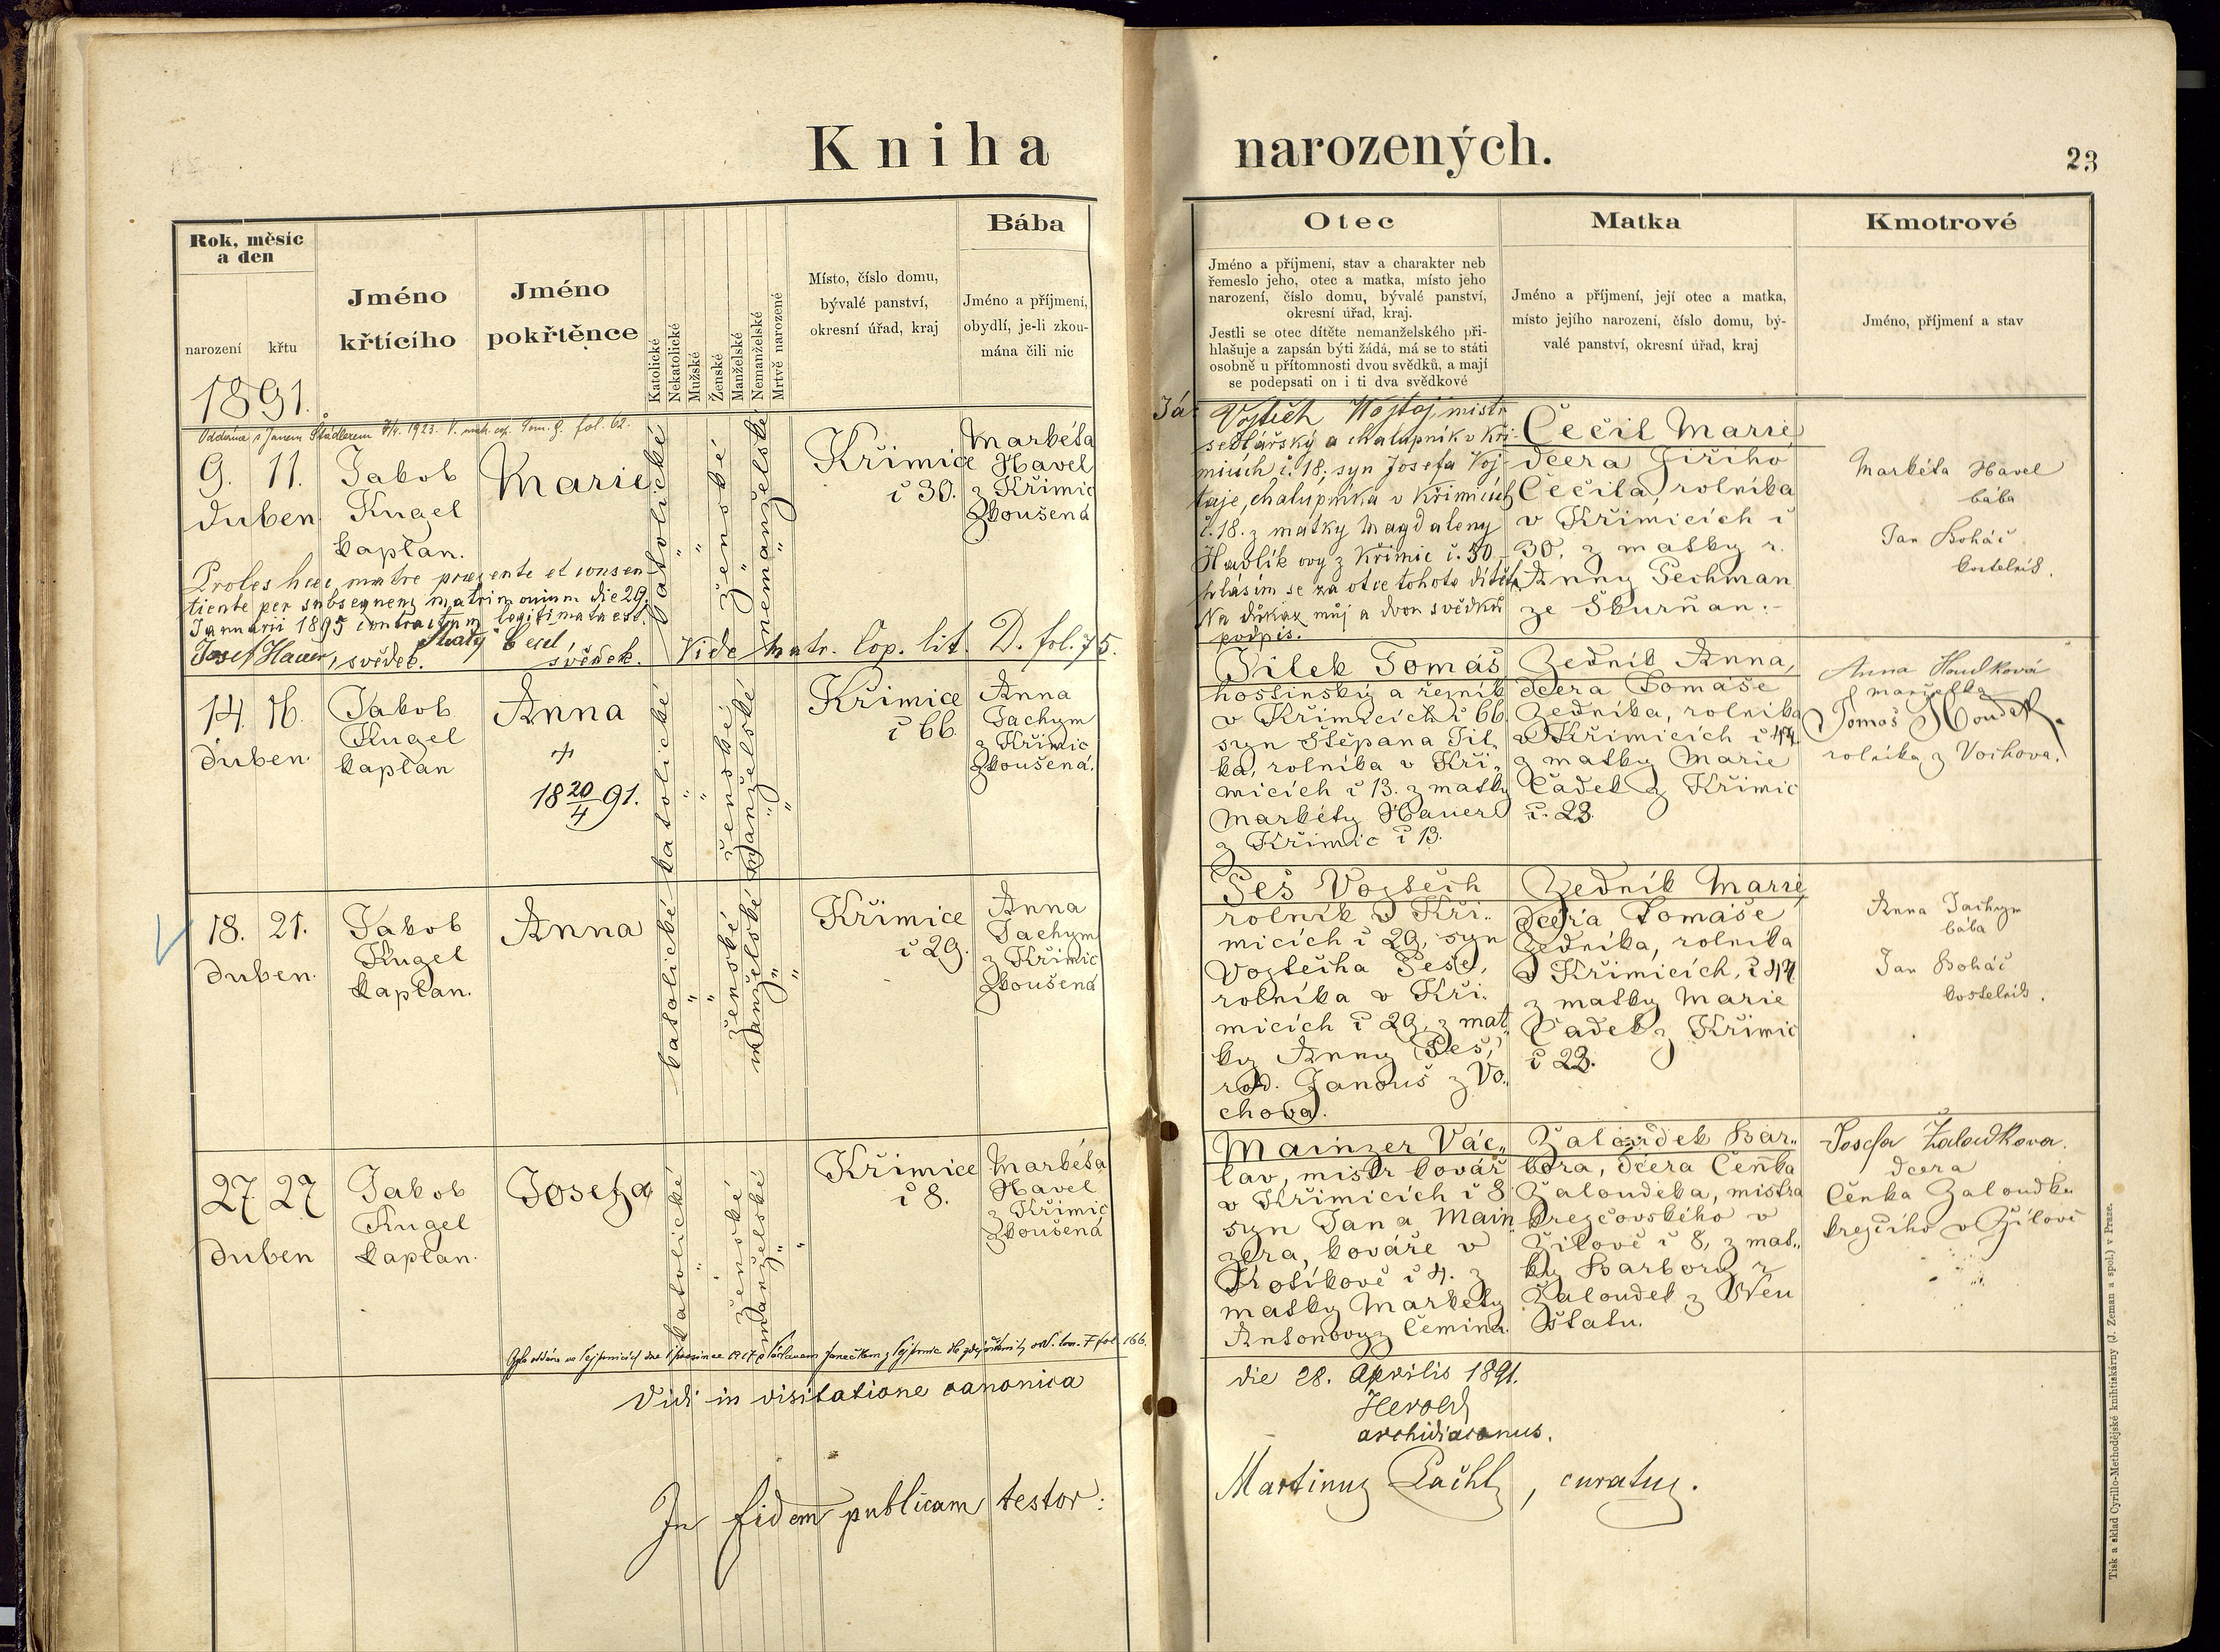 Kniha narozených.
23
Rok, měsíc
a den
narození
křtu
Jméno
křtícího
Jméno
pokřtěnce
Katolické
Nekatolické
Mužské
Ženské
Manželské
Nemanželské
Mrtvě narozené
Místo, číslo domu,
bývalé panství,
okresní úřad, kraj
Bába
Jméno a příjmení,
obydlí, je-li zkou-
mána čili nic
Otec
Jméno a příjmení, stav a charakter neb
řemeslo jeho, otec a matka, místo jeho
narození, číslo domu, bývalé panství,
okresní úřad, kraj.
Jestli se otec dítěte nemanželského při-
hlašuje a zapsán býti žádá, má se to státi
osobně u přítomnosti dvou svědků, a mají
se podepsati on i ti dva svědkové
Matka
Jméno a příjmení, její otec a matka,
místo jejího narození, číslo domu, bý-
valé panství, okresní úřad, kraj
Kmotrové
Jméno, příjmení a stav
1891.
Oddána s Janem Štádlerem 7/4. 1923. V. matr. cop. Tom. G. fol. 62.
9. 11.
duben
Jakob
Kugel
kaplan.
Marie
katolické
"
"
ženské
"
nemanželské
"
Křimice
č 30.
Markéta
Havel
z Křimic
Zkoušená
Proles haec, matre praesente et consen-
tiente per subsequens matrimonium die 29.
Januarii 1895 contractum legitimata est.
Josef Hauer, svědek.
svědek.
Vide matr. Cop. lit. D. fol. 75.
Já:
Vojtěch Wojtaj, mistr
sedlářský a chalupník v Kři-
micích č. 18, syn Josefa Voj-
taje, chalupníka v Křimicích
č. 18. z matky Magdaleny
Havlíkovy z Křimic č. 30
hlásím se za otce tohoto dítěte
Na důkaz můj a dvou svědků
podpis.
Čečil Marie
dcera Jiřího
Čečila, rolníka
v Křimicích č
30, z matky r.
Anny Pechman
ze Škurňan.-
Markéta Havel
bába
Jan Boháč
kostelník.
14. 16.
duben.
Jakob
Kugel
kaplan
Anna
+
18 20/4 91.
katolické
"
"
ženské
manželské
"
"
Křimice
č 66.
Anna
Jachym
z Křimic
Zkoušená.
Jílek Tomáš
hostinský a řezník
v Křimicích č 66.
syn Štěpana Jíl-
ka, rolníka v Kři-
micích č 13. z matky
Markéty Hauer
z Křimic č 13.
Zedník Anna,
dcera Tomáše
Zedníka, rolníka
v Křimicích č 44
z matky Marie
Čadek z Křimic
č. 23.
Anna Houdková
manželka
Tomáš Houdek.
rolníka z Vochova.
18. 21.
duben.
Jakob
Kugel
kaplan.
Anna
katolické
"
"
ženské
manželské
"
"
Křimice
č 29.
Anna
Jachym
z Křimic
Zkoušená
Peš Vojtěch
rolník v Kři-
micích č 29, syn
Vojtěcha Peše,
rolníka v Kři-
micích č 29, z mat-
ky Anny Peš,
rod. Janouš z Vo-
chova.
Zedník Marie,
dcera Tomáše
Zedníka, rolníka
v Křimicích, č 44
z matky Marie
Čadek z Křimic
č 23.
Anna Jachym
bába
Jan Boháč
kostelník.
27 27
duben
Jakob
Kugel
kaplan.
Josefa
katolické
"
"
ženské
manželské
"
"
Křimice
č 8.
Markéta
Havel
z Křimic
Zkoušená
Mainzer Vác-
lav, mistr kovář
v Křimicích č 8
syn Jana Main-
zera, kováře v
č 4. z
matky Markéty
Antonovy z Čemina.
Žaloudek Bar-
bora, dcera Čeňka
Žaloudeka, mistra
krejčovského v
Žilově č 8, z mat-
ky Barbory r
Žaloudek z Neu
štatu.
Josefa Žaloudkova.
dcera
Čeňka Žaloudka
krejčího v Žilově
Vidi in visitatione canonica
die 28. Aprilis 1891.
Herold
archidiaconus.
In fidem publicam testor:
Martinus Pachl, curatus.
Tisk a sklad Cyrillo-Methodějské knihtiskárny (J. Zeman a spol.) v Praze.